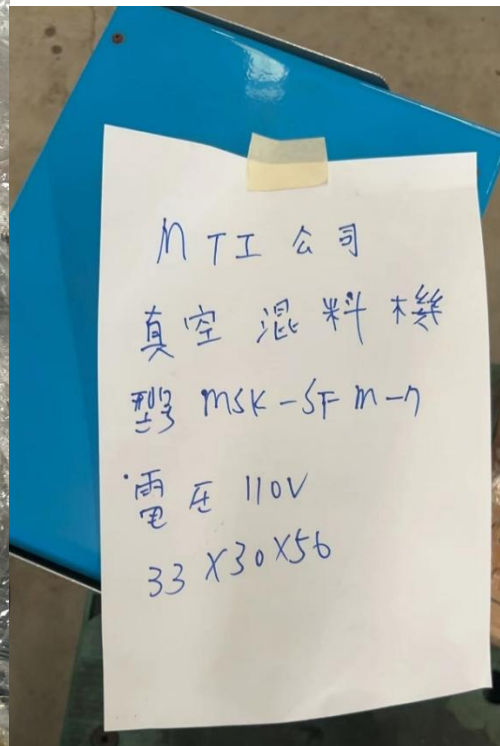 MTI 公司
真空混料機
型號 MSK-SFM-7
電压 110V
33X30X56